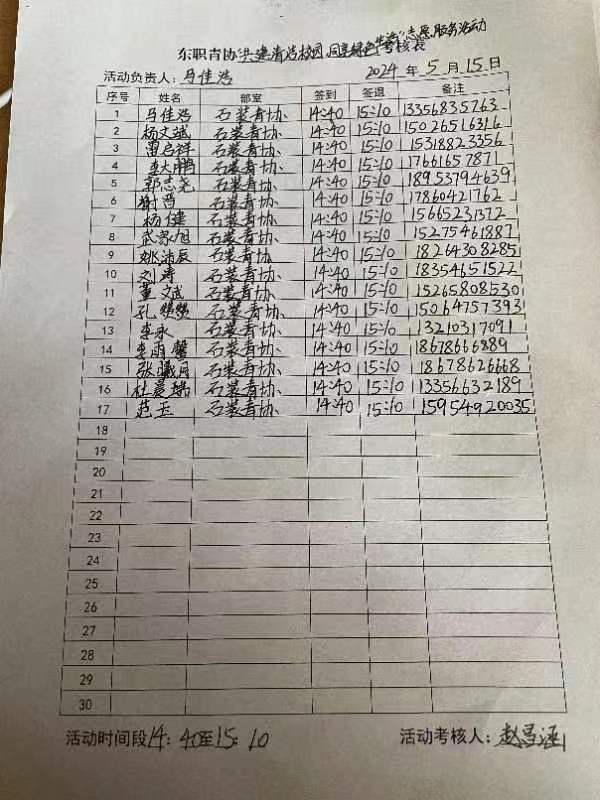 东职青协"共建清洁校园,同享绿色生活"志愿服务活动考核表
活动负责人:马佳浩 2024 年 5 月 15 日
序号 姓名 部室 签到 签退 备注
1 马佳浩 石装青协 14:40 15:10 13356835763
2 杨文斌 石装青协 14:40 15:10 15026516316
3 雷启祥 石装青协 14:40 15:10 15318823356
4 李大鹏 石装青协 14:40 15:10 17661657871
5 郭志尧 石装青协 14:40 15:10 18953794639
6 石装青协 14:40 15:10 17860421762
7 杨健 石装青协 14:40 15:10 15665231372
8 武 旭 石装青协 14:40 15:10 15275461887
9 姚沛辰 石装青协 14:40 15:10 18264308285
10 刘涛 石装青协 14:40 15:10 18354651522
11 董文斌 石装青协 14:40 15:10 15265808530
12 孔 石装青协 14:40 15:10 15064757393
13 李永 石装青协 14:40 15:10 13210317091
14 李雨馨 石装青协 14:40 15:10 18678666889
15 张曦月 石装青协 14:40 15:10 18678626668
16 杜晨瑞 石装青协 14:40 15:10 13356632189
17 范玉 石装青协 14:40 15:10 15954920035
18
19
20
21
22
23
24
25
26
27
28
29
30
活动时间段14:40至15:10 活动考核人:赵昌涵